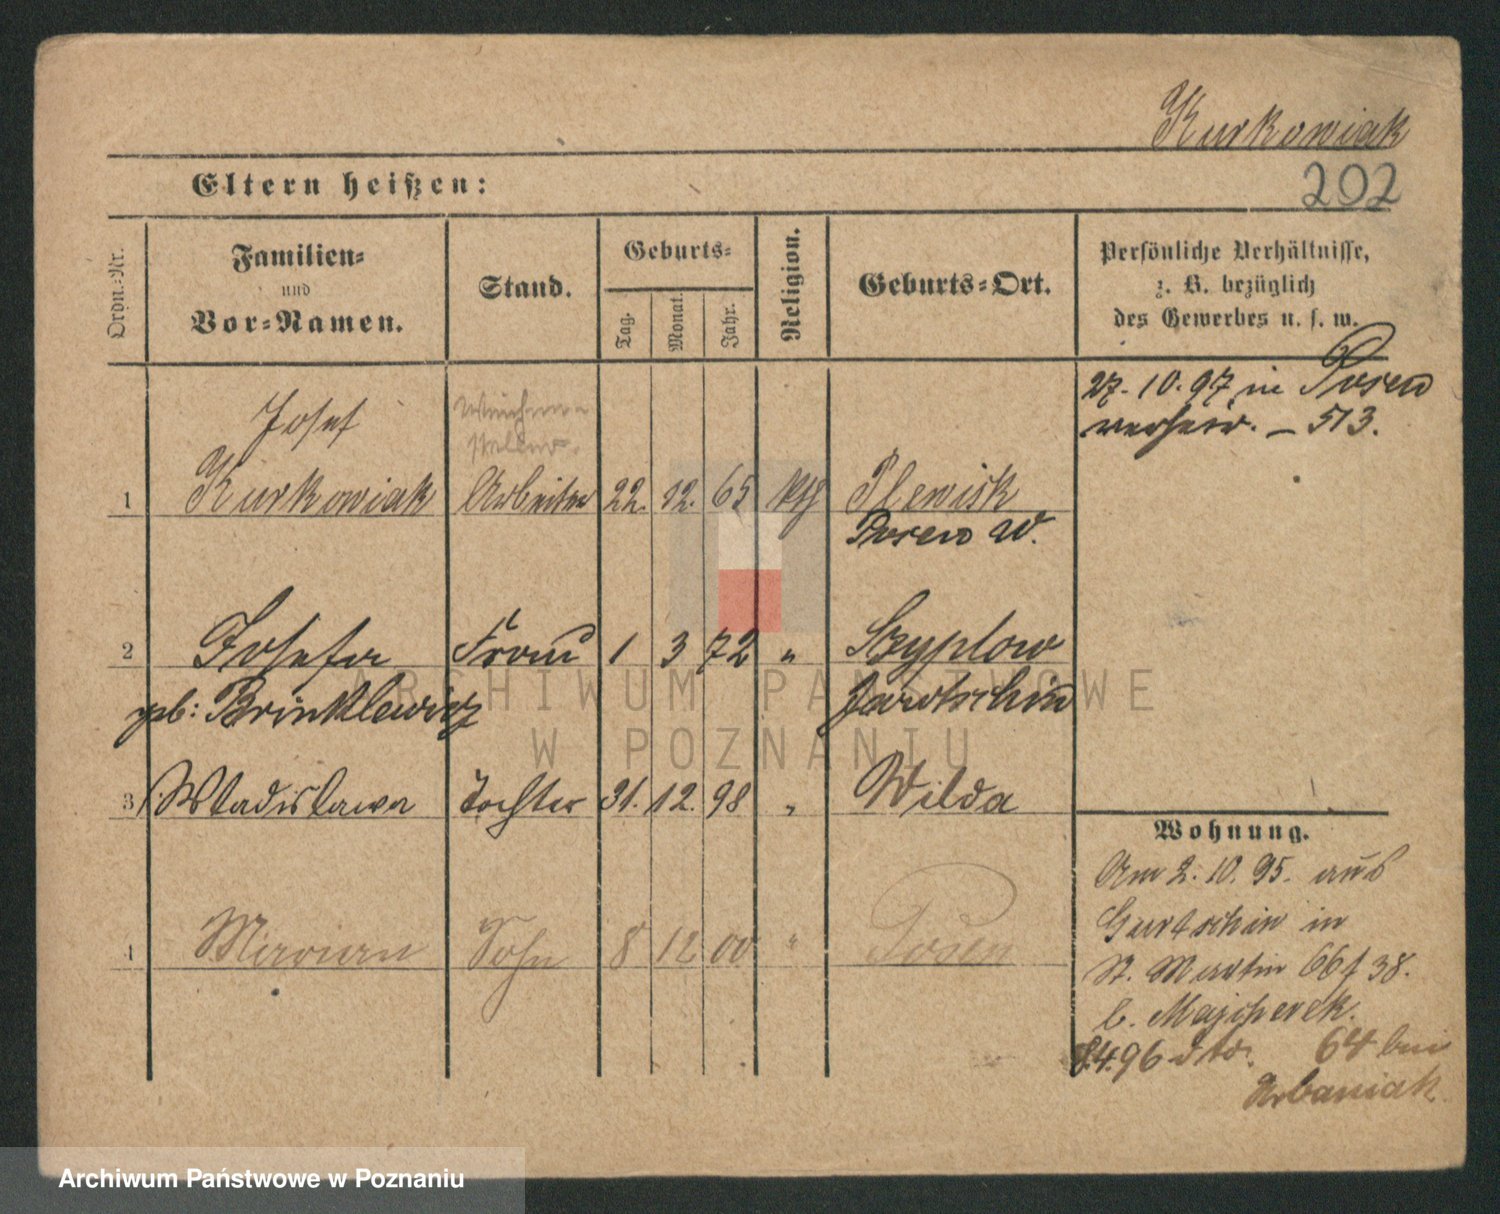 Kurkowiak
Eltern heißen:
202
Ordn.-Nr.
Familien-
und
Vor-Namen.
Stand.
Geburts-
Tag.
Monat.
Jahr.
Religion.
Geburts-Ort.
Persönliche Verhältnisse,
z. B. bezüglich
des Gewerbes u. s. w.
27. 10. 97 in Posen
verheir. – 513.
Josef
1 Kurkowiak Arbeiter 22. 12. 65 kth Plewisk
Posen W.
2 Josefa Frau 1 3 72 " Szyplow
geb: Brinklewicz Jarotschin
3 Wladislawa Tochter 31. 12. 98 " Wilda
4 Marian Sohn 8 12 00 " Posen
Wohnung.
Am 2. 10. 95. aus
Gurtschin in
St. Martin 66/ 38.
b. Majcherek.
8.4.96 dto. 64 bei
Urbaniak.
ARCHIWUM PAŃSTWOWE
W POZNANIU
Archiwum Państwowe w Poznaniu